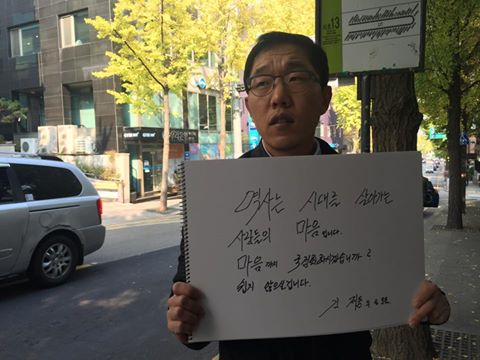 13
역사는 시대를 살아가는
사람들의 마음입니다.
마음까지 국정화 하시겠습니까?
쉽지 않으실겁니다.